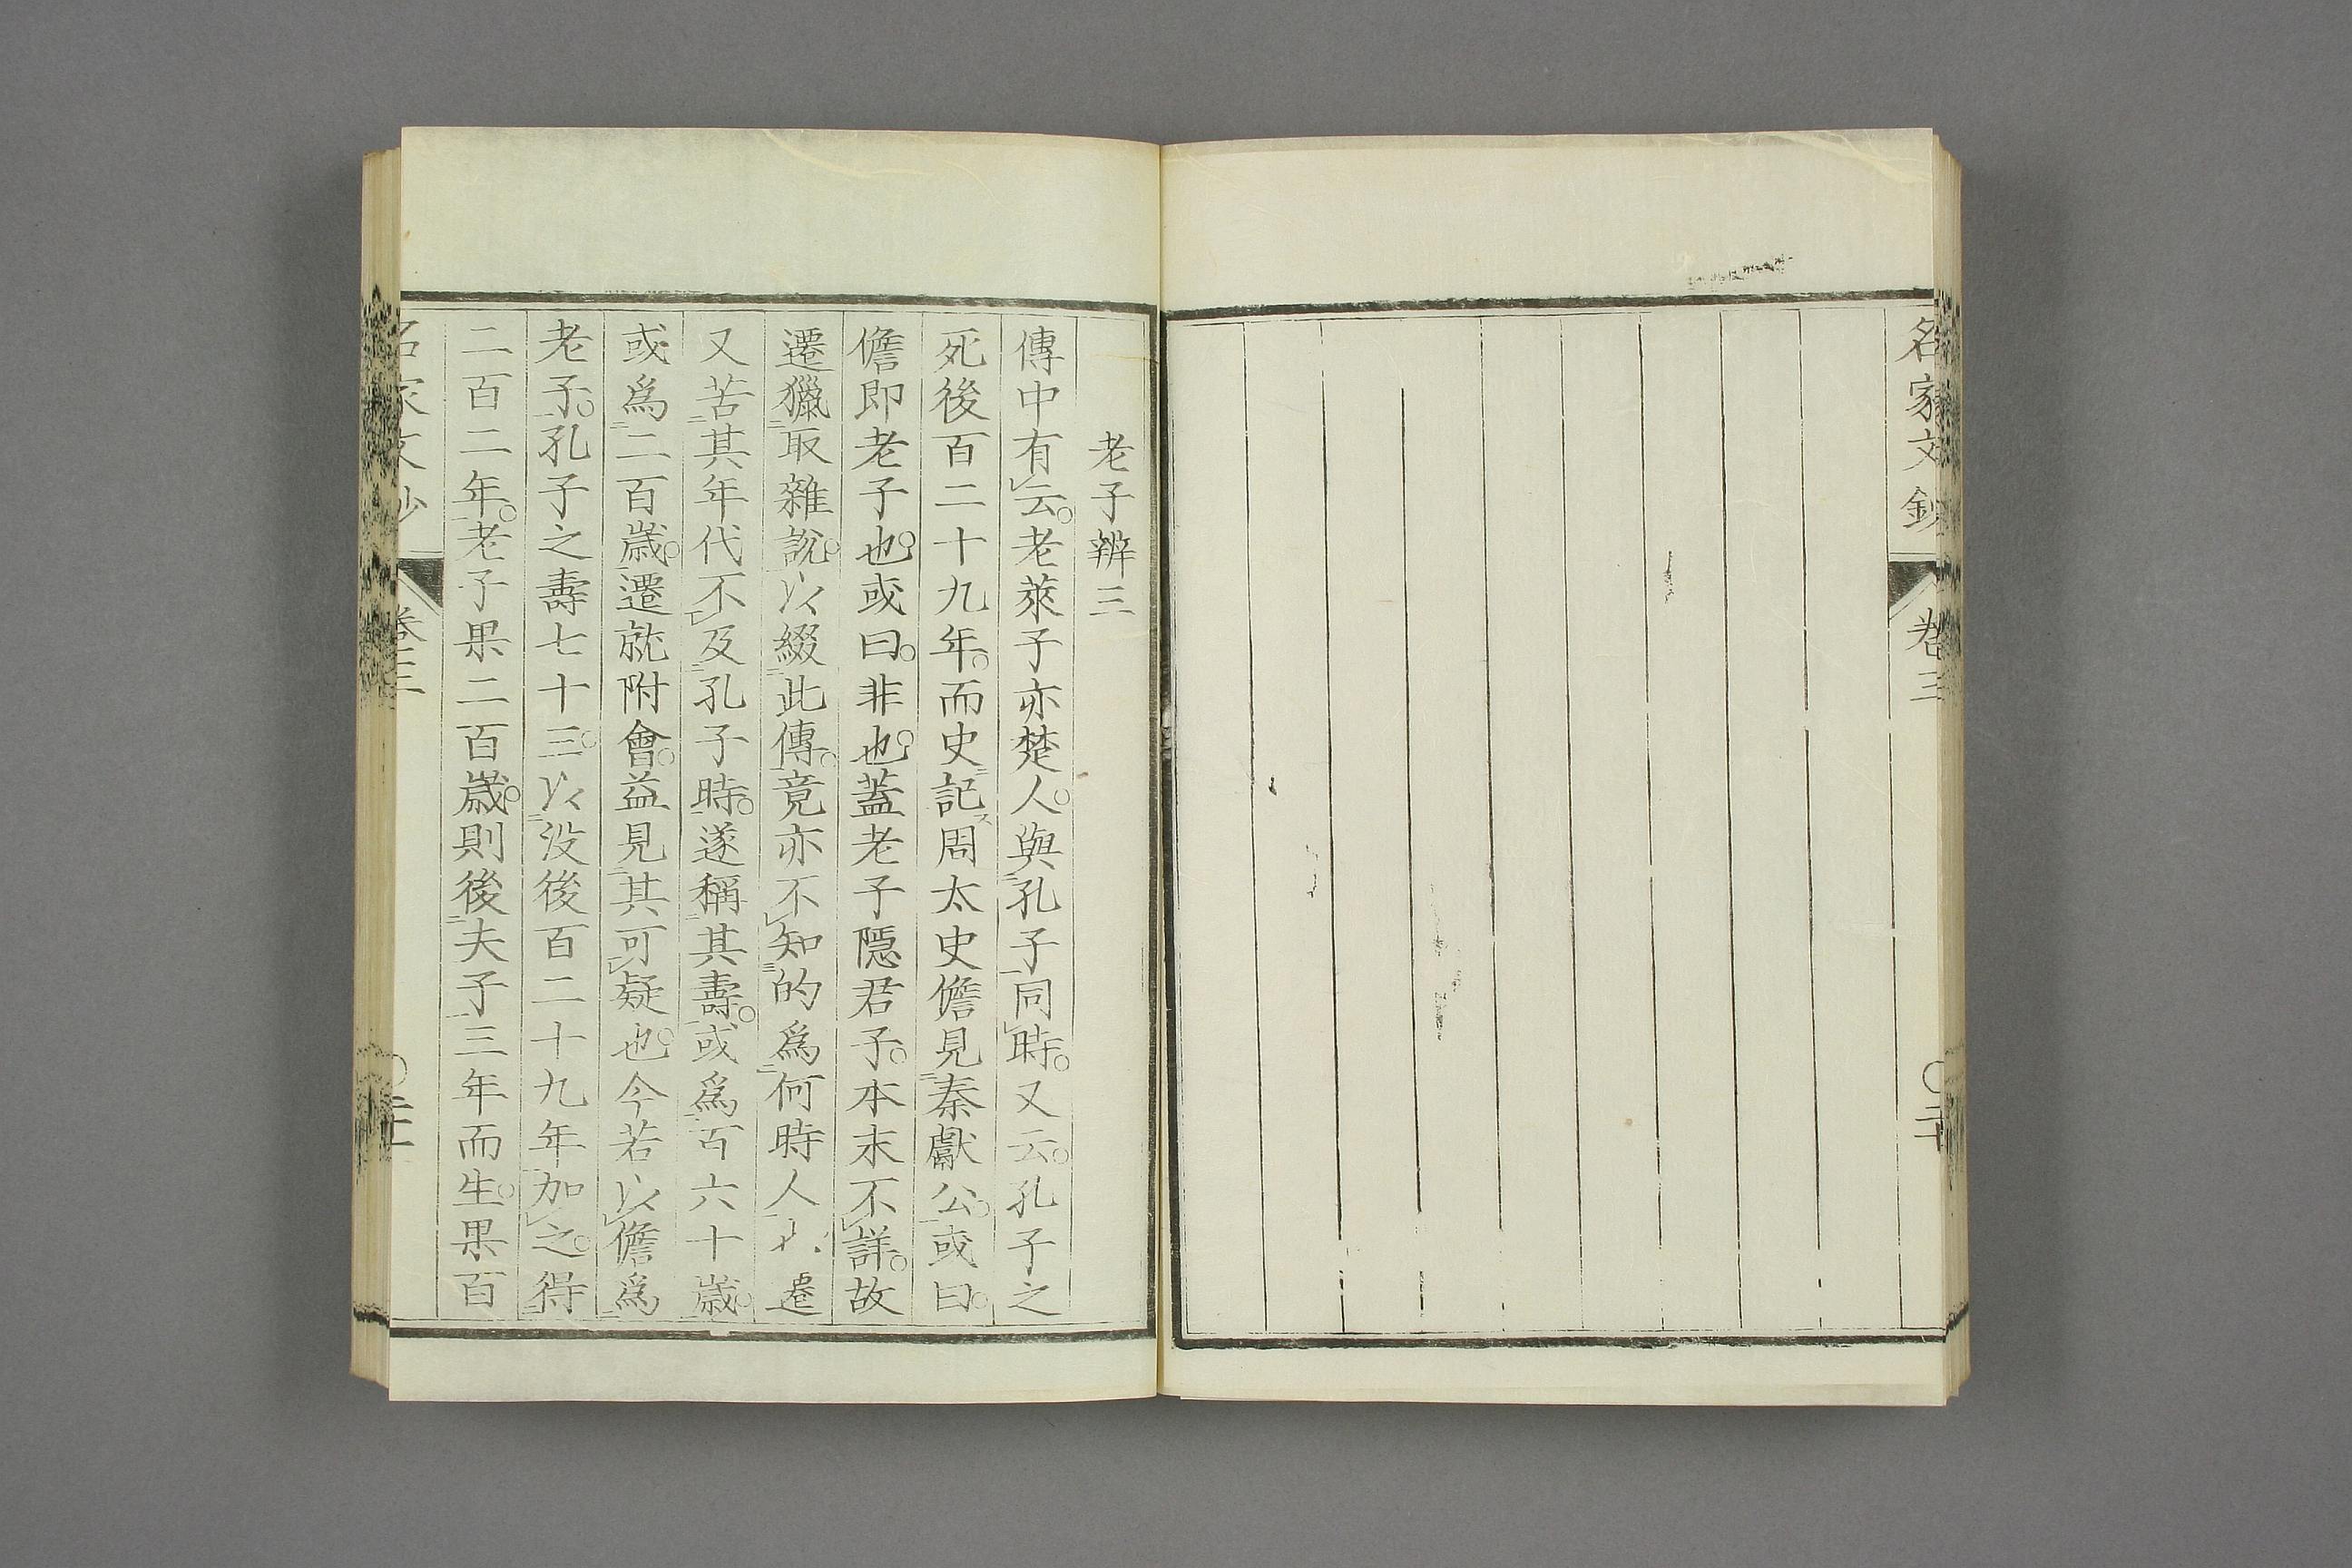 名家文鈔
卷三
〇二十
老子辨三
傳中有云。老萊子亦楚人。與孔子同時。又云。孔子之
死後百二十九年。而史記周太史儋見秦獻公。或曰。
儋即老子也。或曰。非也。蓋老子隱君子。本末不詳。故
遷獵取雜說。以綴此傳。竟亦不知的爲何時人也。遷
又苦其年代不及孔子時。遂稱其壽。或爲百六十歲。
或爲二百歲。遷就附會。益見其可疑也。今若以儋爲
老子。孔子之壽七十三。以沒後百二十九年加之。得
二百二年。老子果二百歲。則後夫子三年而生。果百
名家文鈔
卷三